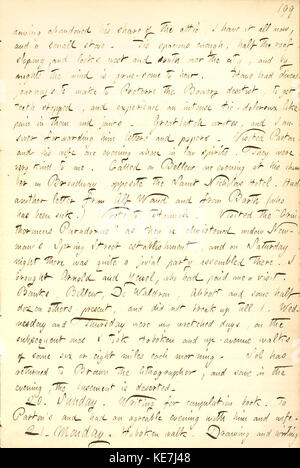 199
having abandoned his share of the attic. I have it all now,
and a small stove. Tis spacious enough, half the roof
sloping, and looks west and south over the city, and by
nights the wind is grue-some to hear. Have had divers
journeys to make to Preterre the Bowery dentist to get
teeth stopped, and experience an intense tic-doloreux like
pain in them and jaws. Brightlatch writes, and I an-
swer forwarding him letters and papers. Visited Parton
and his wife one evening alone in low spirits. They were
very kind to me. Called on Bellew one evening at his cham-
ber in Broadway opposite the Saint Nicholas Hotel. Had
another letter from Alf Waud and from Barth (who
has been sick.) Wrote to Hannah. Visited the "Orni-
thorhyncus Paradoxus" as they've christened widow New-
man's Spring Street establishment, and on Saturday
night there was quite a jovial party assembled there. I
brought Arnold and Heuel, who had paid me a visit.
Banks, Bellew, De Waldron, Abbot and some half
dozen others present, and did not break up till 1. Wed-
nesday and Thursday were my wretched days, on the
subsequent ones I took Hoboken and up-avenue walks
of some six or eight miles each morning. Job has
returned to Brown the lithographer, and save in the
evening the basement is deserted.
20. Sunday. Writing for compilation book. To
Parton's and had an agreeable evening with him and wife.
21. Monday. Hoboken walk. Drawing and writing
alamy
Image ID: KE7J48
www.alamy.com